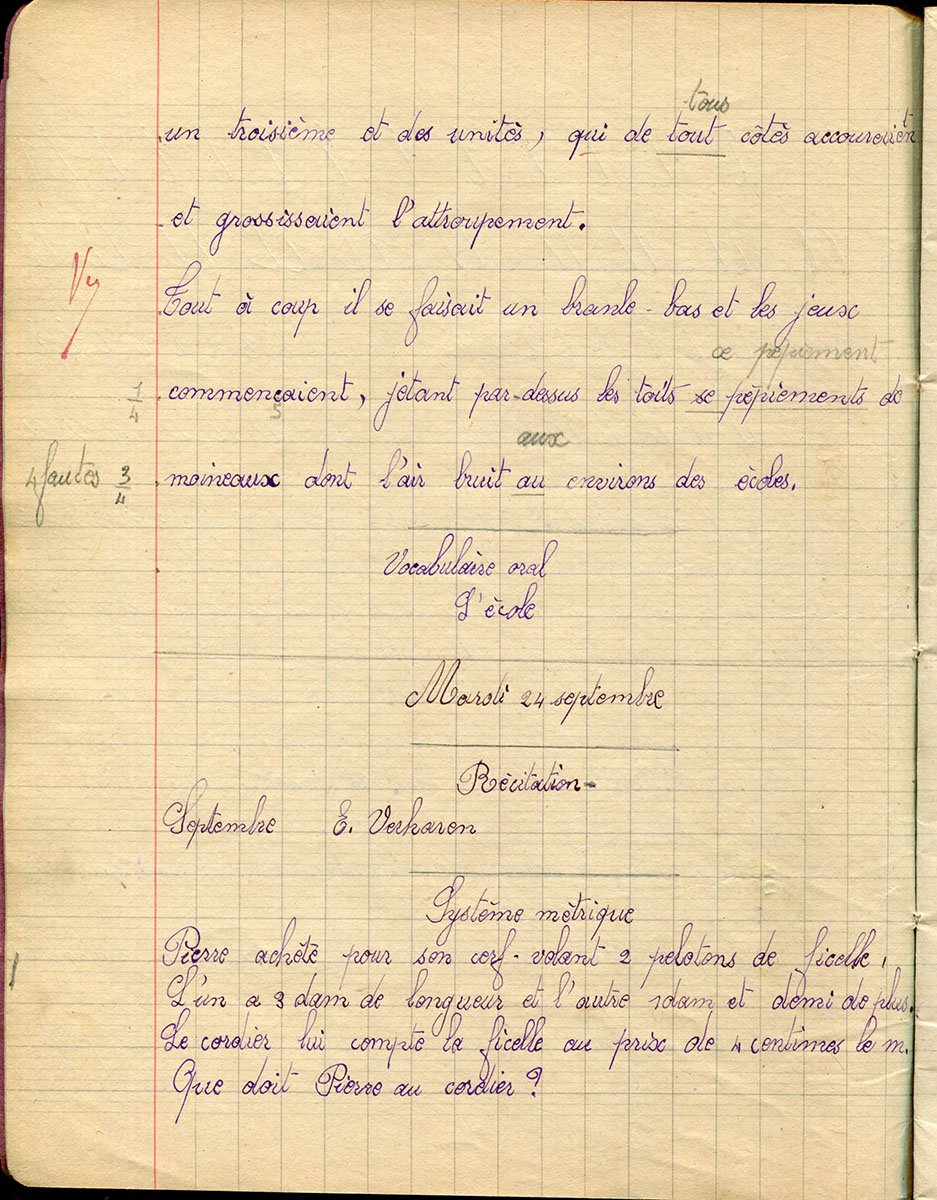 tous
un troisième et des unités, qui de tout côtés accouraient
et grossissaient l'attroupement.
Vu
Tout à coup il se faisait un branle-bas et les jeux
ce pépiement
1/4 commençaient, jetant par-dessus les toits se pépiements de
5
aux
4 fautes 3/4 moineaux dont l'air bruit au environs des écoles.
Vocabulaire oral
L'école
Mardi 24 septembre
Récitation
Septembre E. Verharen
Système métrique
Pierre achète pour son cerf-volant 2 pelotons de ficelle,
L'un a 3 dam de longueur et l'autre 1dam et demi de plus.
Le cordier lui compte la ficelle au prix de 4 centimes le m.
Que doit Pierre au cordier ?